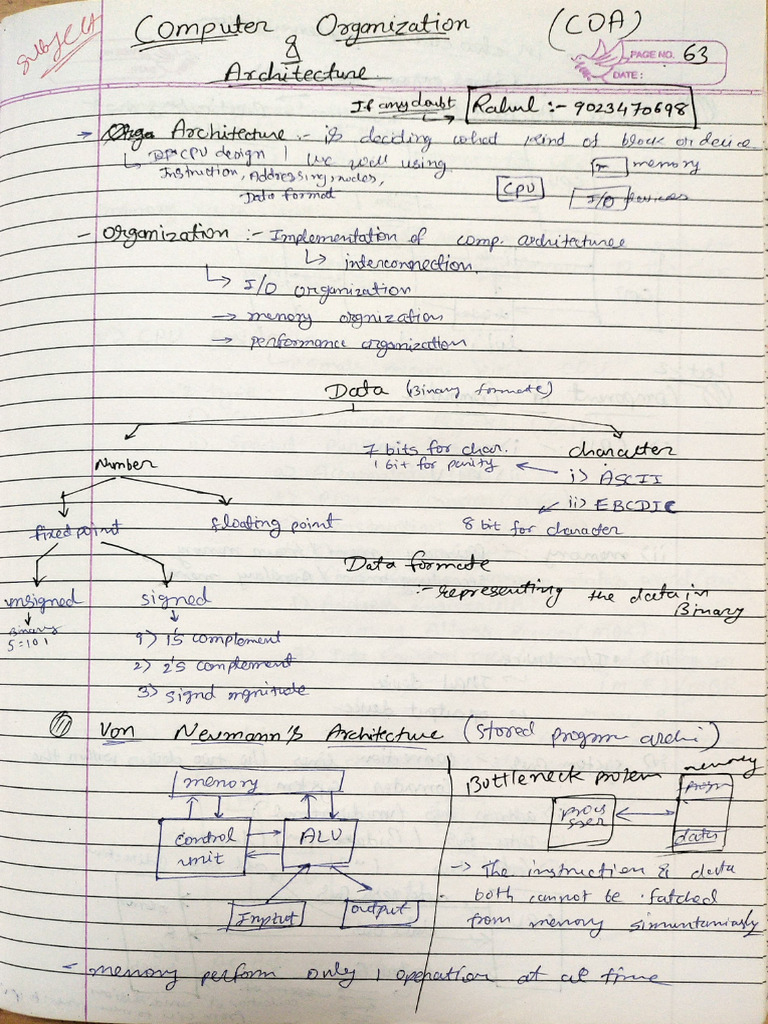 Subject
Computer Organization (COA)
&
Architecture
PAGE NO. 63
DATE:
If any doubt Rahul :- 9023470698
→ Architecture :- is deciding what kind of block or device
CPU design | we will using
Instruction, Addressing, modes,
Data format
m memory
CPU
I/O devices
- Organization :- Implementation of comp. architecturee
interconnection.
I/O organization
→ memory orgnization
→ performance organization
Data (Binary formate)
Number
character
7 bits for char.
1 bit for parity
i) ASCII
ii) EBCDIC
8 bit for character
fixed point
floating point
unsigned
signed
Binary
5=101
1) 1's complement
2) 2's complement
3) signd mgnitude
Data formate
:- representing the data in
Binary
Von Neumann's Architecture (stored program archi)
memory
control
unit
ALU
Inptut
output
Bottleneck problem
proce
sser
memory
progm
data
→ The instruction & data
both cannot be fatched
from memory simuntaniously
- memory perform only 1 operation at at time